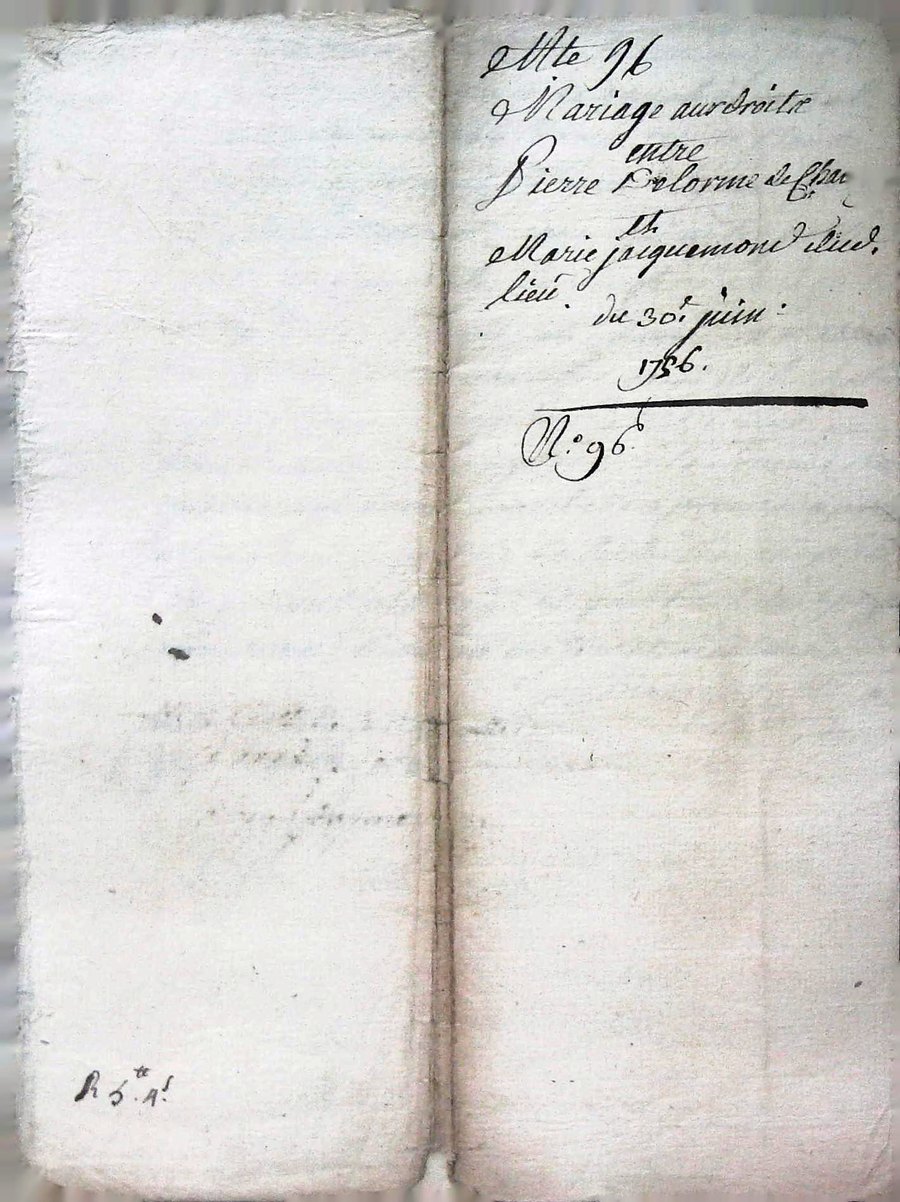 Mte 96
Mariage aux droits
entre
Pierre Delorme de
et
Marie jacquemond dud.
lieu.
du 30e juin
1756.
No. 96
R 5tt 4s